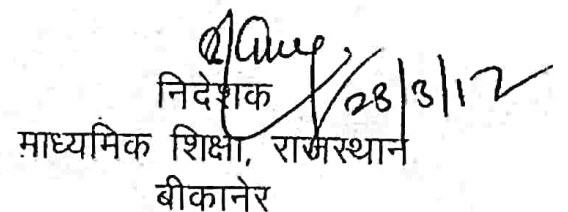 28/3/12
निदेशक
माध्यमिक शिक्षा, राजस्थान
बीकानेर